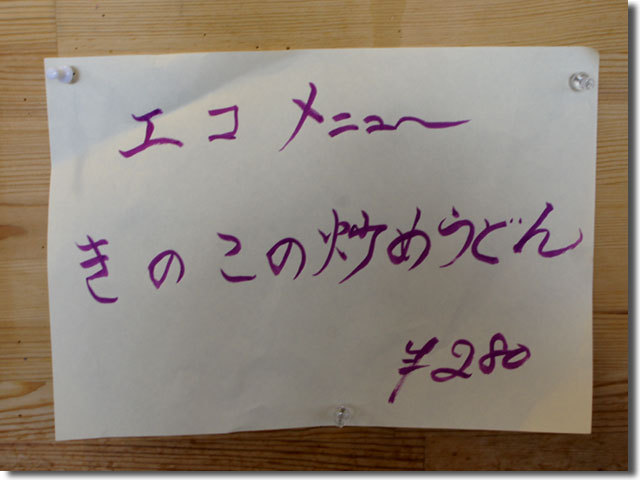 エコ メニュー
きのこの炒めうどん
¥280